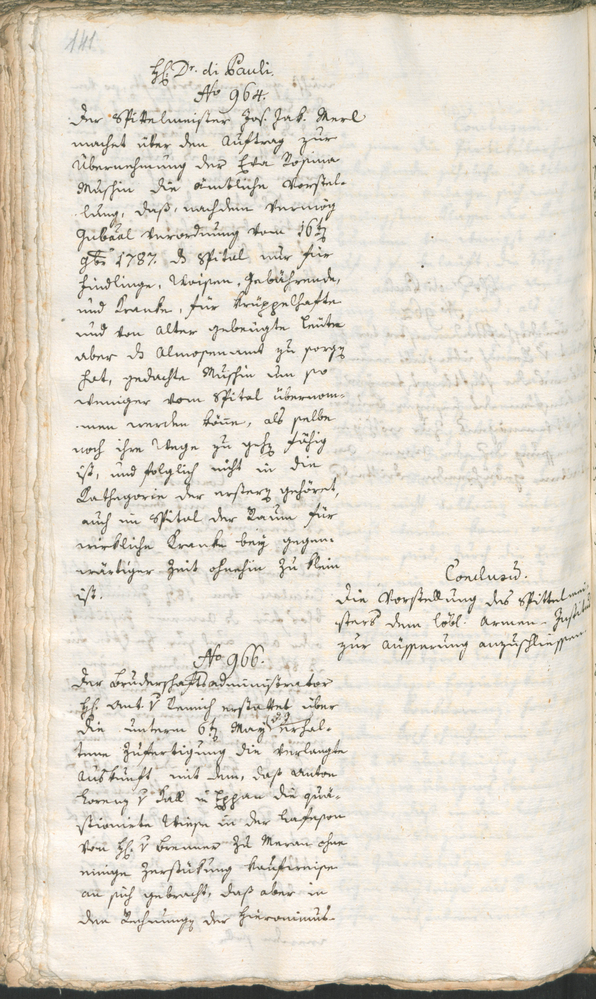 141.
H: Dr. di Pauli.
No 964.
Der Spittelmeister Jos. Jak. Merl
machet über den Auftrag zur
Übernehmung der Eva Rosina
Mushin die ämtliche Vorstel-
lung, daß, nachdem vermög
Gubernal Verordnung vom 16t
9br 1787. ds Spital nur für
Findlinge, Waisen, Gebährende,
und Kranke, für Krüppelhafte
und von Alter gebeugte Leute
aber ds Almosenamt zu sorgen
hat, gedachte Mushin um so
weniger vom Spital übernom-
men werden könne, als selbe
noch ihre Wege zu gehen fähig
ist, und folglich nicht in die
Kathegorie der ersteren gehöret,
auch im Spital der Raum für
wirkliche Kranke bey gegen-
wärtiger Zeit ohnehin zu klein
ist.
Conclusum.
Die Vorstellung des Spittelmei-
sters dem löbl. Armen-Institut
zur Äusserung anzuschliessen.
No 966.
Der Bruderschaftsadministrator
H: Ant. v Remich erstattet über
die unterm 6t May erhal-
tene Zufertigung die verlangte
Auskunft mit dem, daß Anton
Lorenz v Call in Eppan die quä-
stionirte Wiese in der
von H: v Brenner zu Meran ohne
einige Zerstükung kaufweise
an sich gebracht, daß aber in
den Rechnungen der Hieronimus-